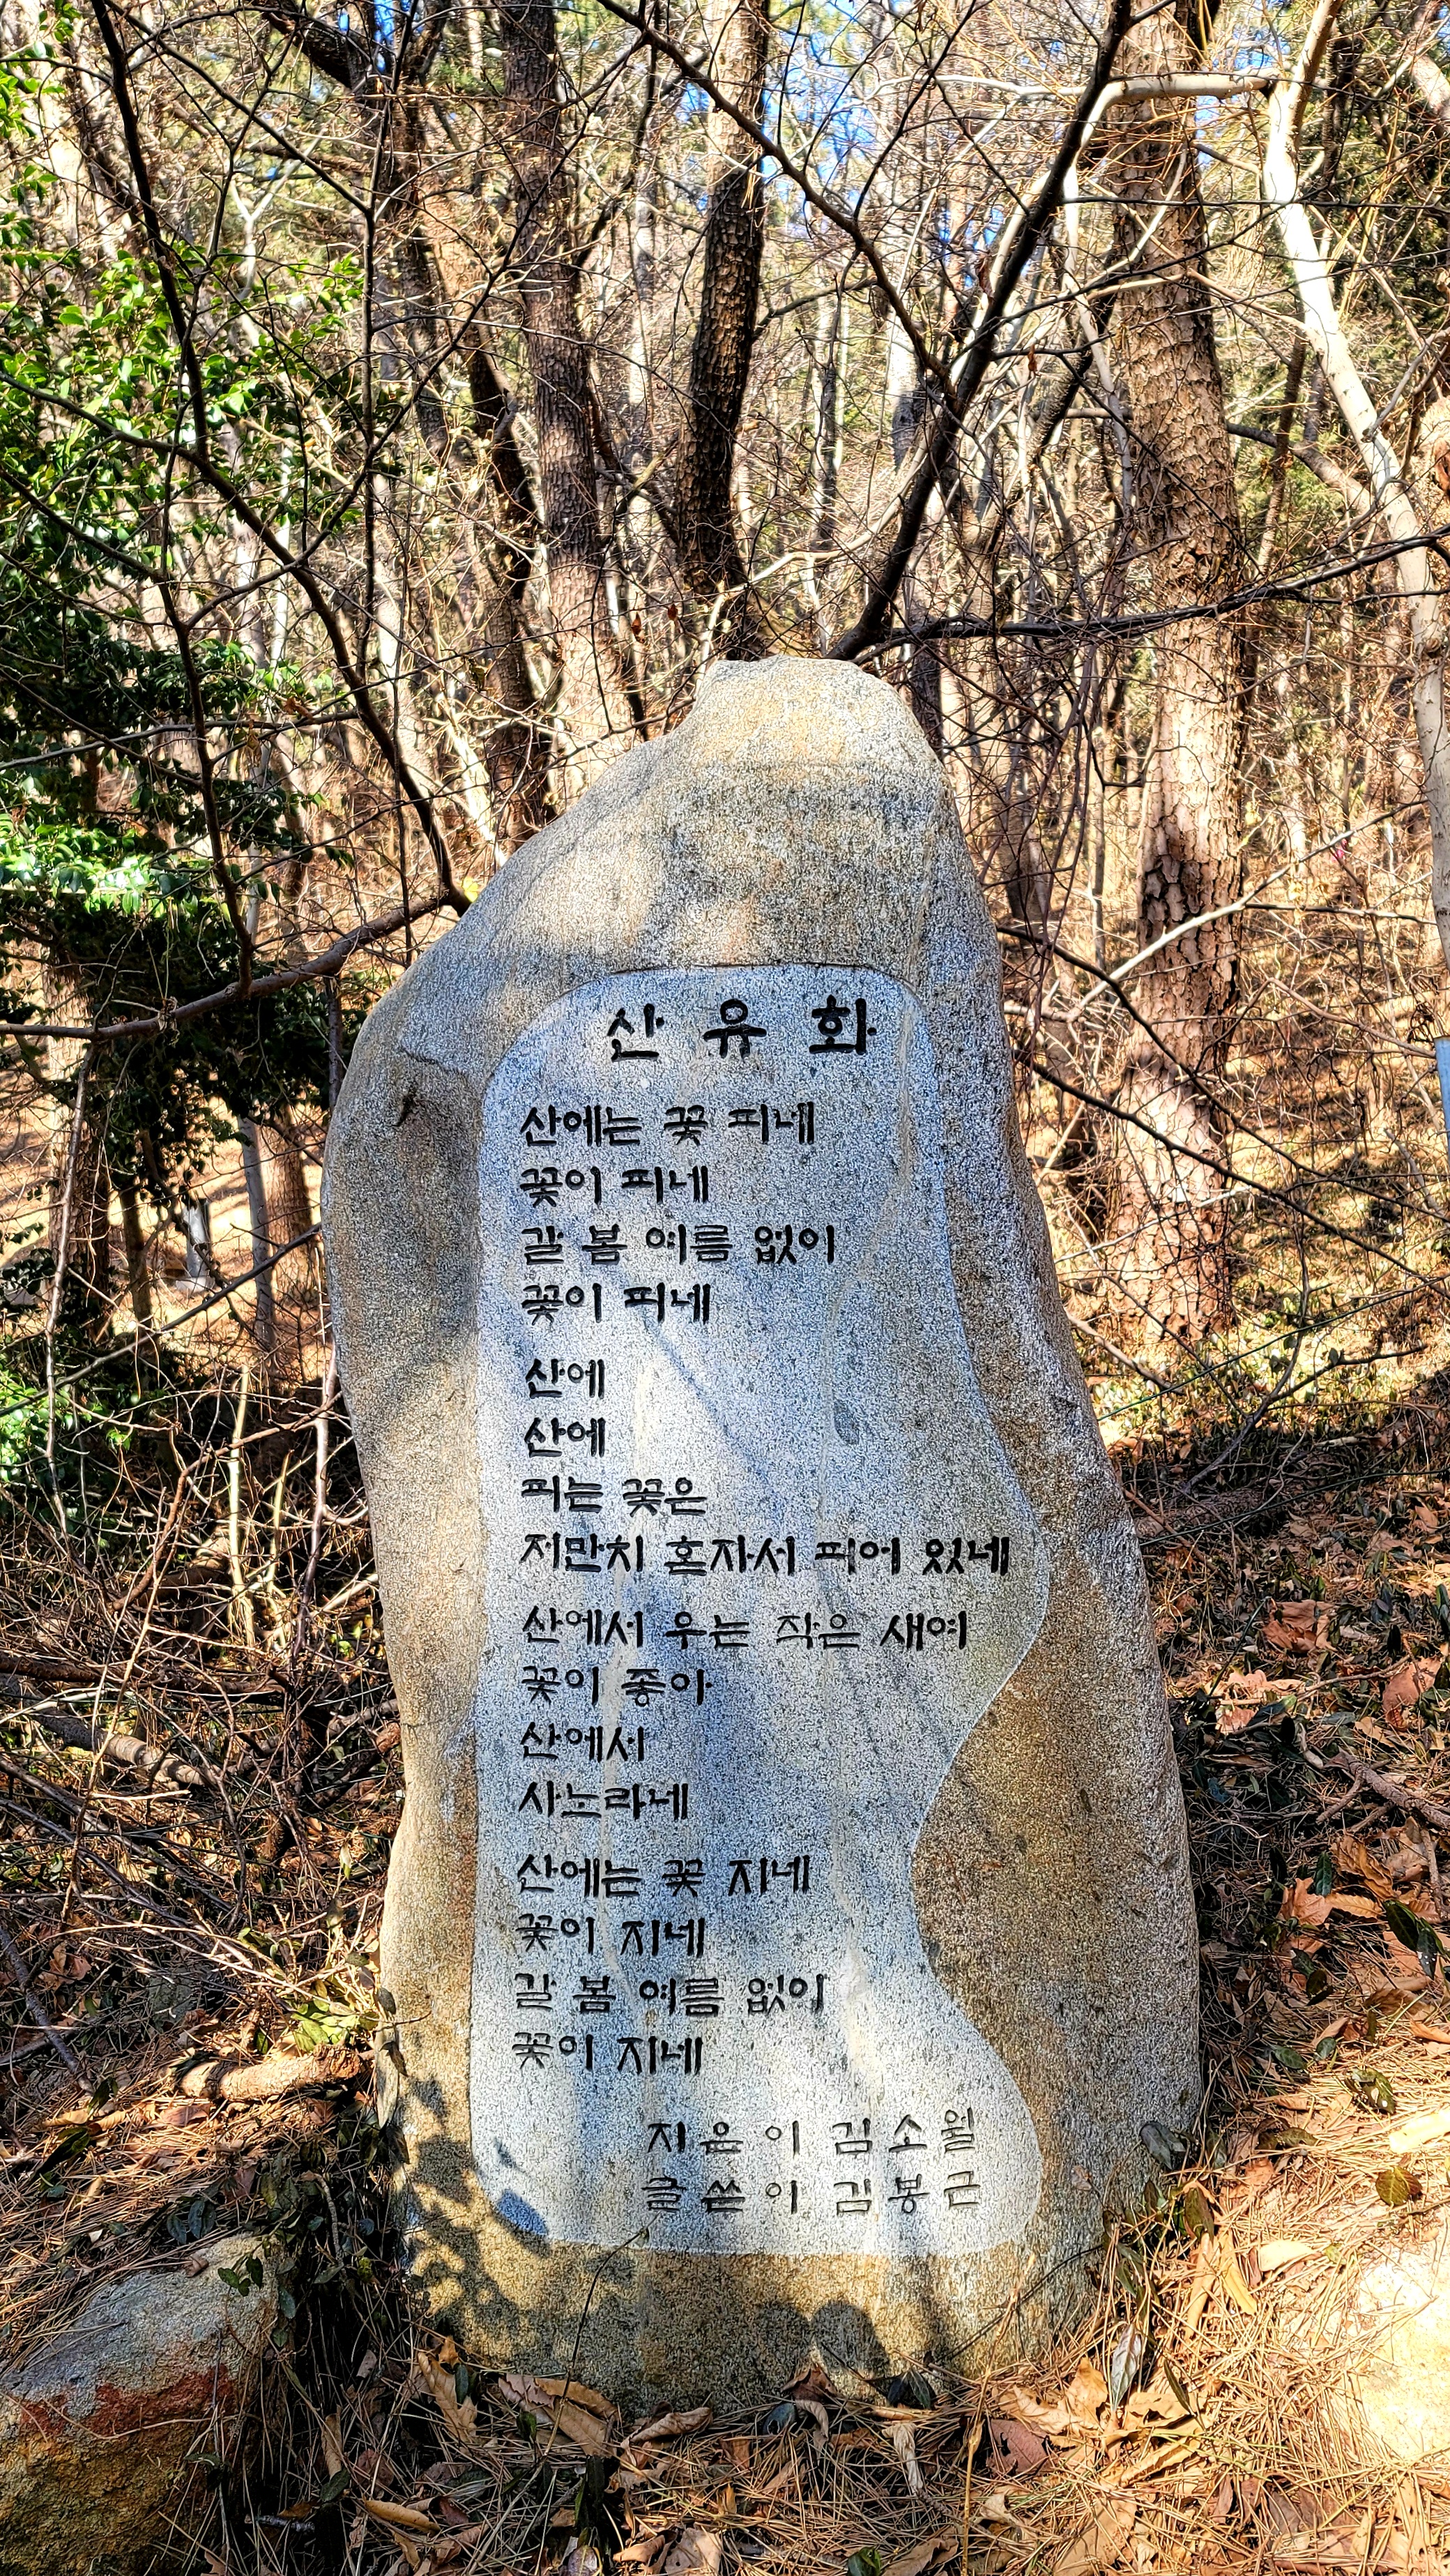 산유화
산에는 꽃 피네
꽃이 피네
갈 봄 여름 없이
꽃이 피네
산에
산에
피는 꽃은
저만치 혼자서 피어 있네
산에서 우는 작은 새여
꽃이 좋아
산에서
사노라네
산에는 꽃 지네
꽃이 지네
갈 봄 여름 없이
꽃이 지네
지은이 김소월
글쓴이 김봉근